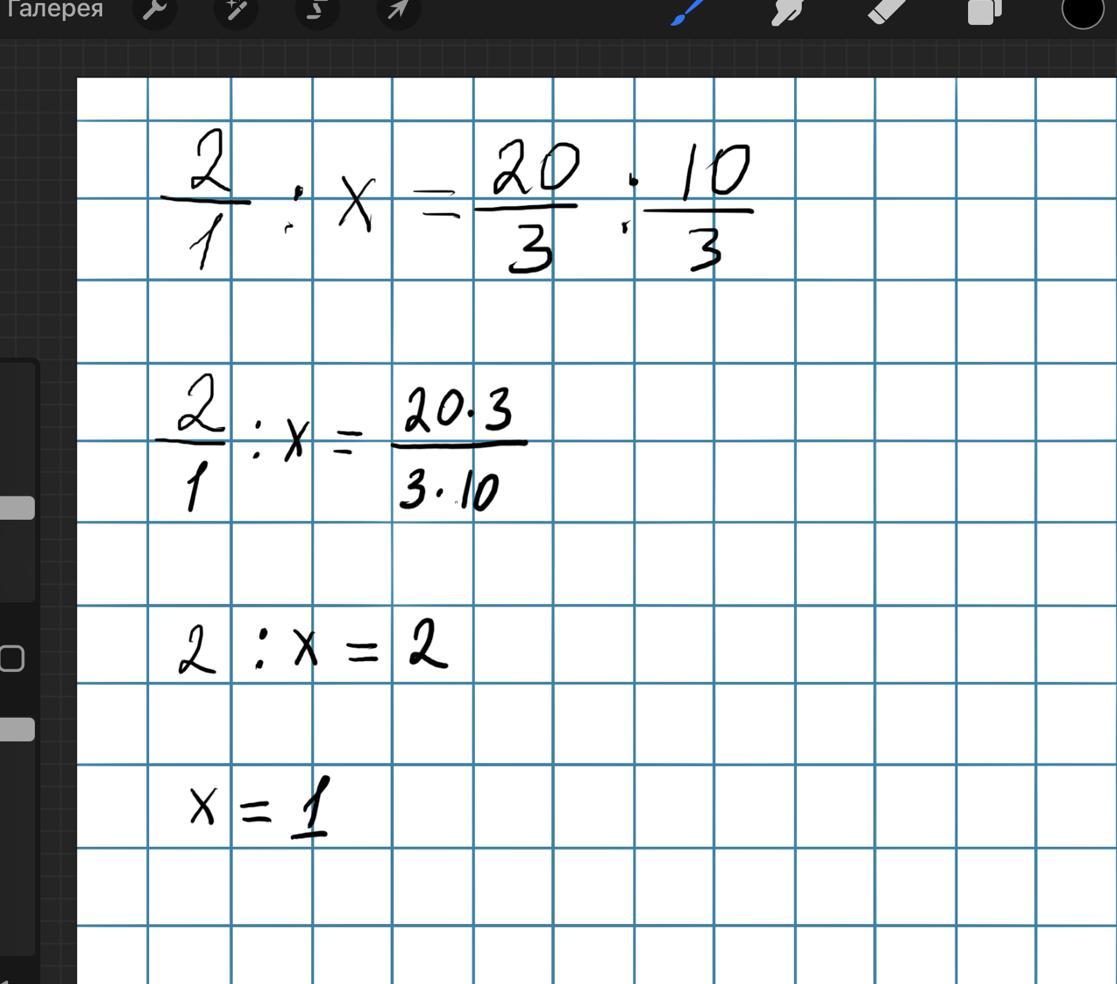 Галерея
2/1 : x = 20/3 : 10/3
2/1 : x = 20·3/3·10
2 : x = 2
x = 1